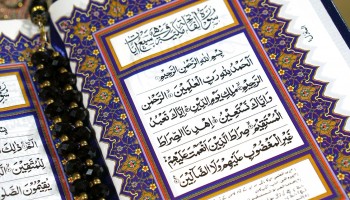 سُورَةُ الْفَاتِحَةِ وَهِيَ سَبْعُ آيَاتٍ
بِسْمِ اللّٰهِ الرَّحْمٰنِ الرَّحِيمِ
اَلْحَمْدُ لِلّٰهِ رَبِّ الْعَالَمِينَ الرَّحْمٰنِ
الرَّحِيمِ مَالِكِ يَوْمِ الدِّينِ اِيَّاكَ نَعْبُدُ
وَاِيَّاكَ نَسْتَعِينُ اِهْدِنَا الصِّرَاطَ
الْمُسْتَقِيمَ صِرَاطَ الَّذِينَ اَنْعَمْتَ عَلَيْهِمْ
غَيْرِ الْمَغْضُوبِ عَلَيْهِمْ وَلَا الضَّالِّينَ
لِلْمُتَّقِينَ